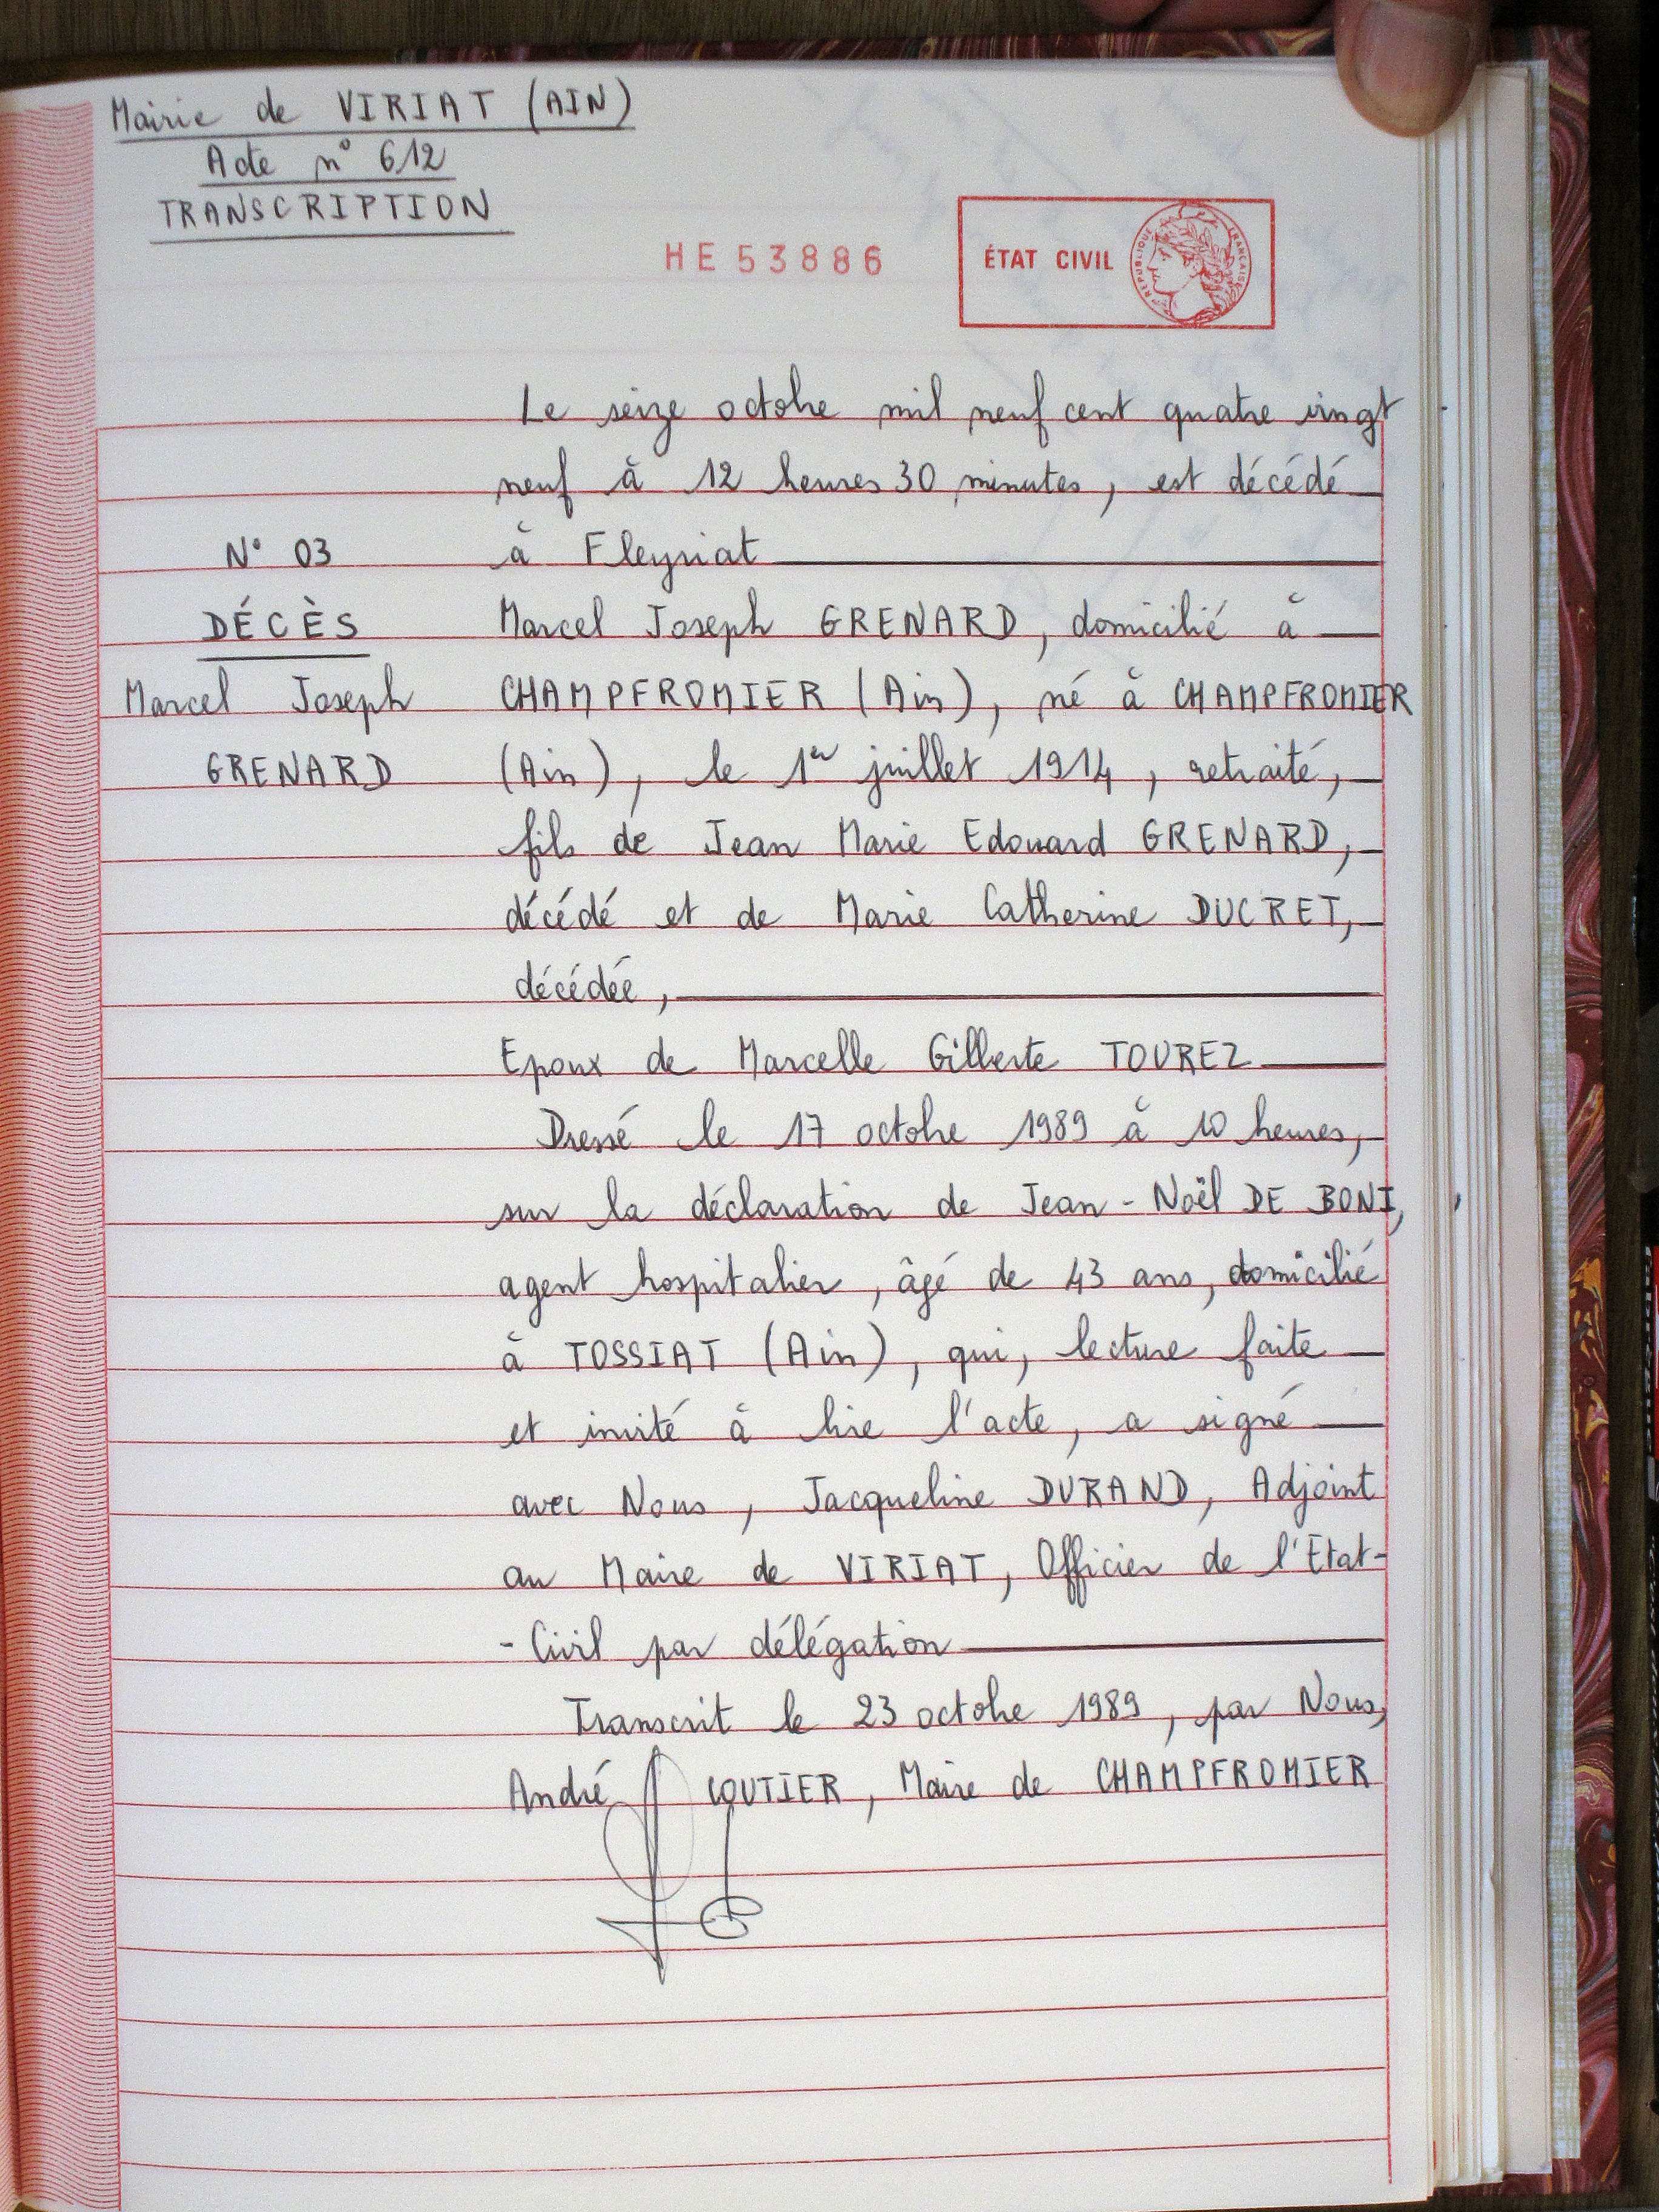 Mairie de VIRIAT (AIN)
Acte n° 612
TRANSCRIPTION
HE 53886
ÉTAT CIVIL
RÉPUBLIQUE FRANÇAISE
Le seize octobre mil neuf cent quatre vingt
neuf à 12 heures 30 minutes, est décédé
à Fleyriat
N° 03
DÉCÈS
Marcel Joseph
GRENARD
Marcel Joseph GRENARD, domicilié à
CHAMPFROMIER (Ain), né à CHAMPFROMIER
(Ain), le 1er juillet 1914, retraité,
fils de Jean Marie Edouard GRENARD,
décédé et de Marie Catherine DUCRET,
décédée,
Epoux de Marcelle Gilberte TOUREZ
Dressé le 17 octobre 1989 à 10 heures,
sur la déclaration de Jean-Noël DE BONI,
agent hospitalier, âgé de 43 ans, domicilié
à TOSSIAT (Ain), qui, lecture faite
et invité à lire l'acte, a signé
avec Nous, Jacqueline DURAND, Adjoint
au Maire de VIRIAT, Officier de l'Etat-
-Civil par délégation
Transcrit le 23 octobre 1989, par Nous,
André COUTIER, Maire de CHAMPFROMIER